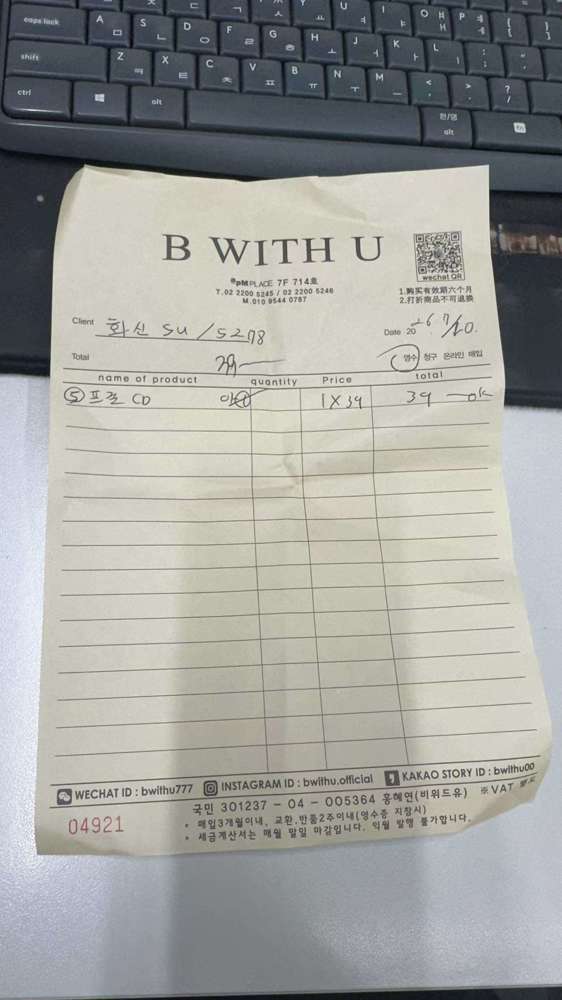 caps lock A ㅁ S ㄴ D ㅇ F ㄹ G ㅎ H ㅗ J ㅓ K ㅏ L ㅣ
shift Z ㅋ X ㅌ C ㅊ V ㅍ B ㅠ N ㅜ M ㅡ < , > . ? /
ctrl alt 한/영 alt fn
B WITH U
apM PLACE 7F 714호
T.02 2200 5245 / 02 2200 5246
M.010 9544 0787
wechat QR
1.购买有效期六个月
2.打折商品不可退换
Client 화신 su / 5278
Date 20 26. 7/20.
Total 39
영수 청구 온라인 매입
name of product quantity Price total
Ⓢ 프릴 CD 아 1 X 39 39 ok
WECHAT ID : bwithu777 INSTAGRAM ID : bwithu.official KAKAO STORY ID : bwithu00
국민 301237 - 04 - 005364 홍혜연(비위드유) ※VAT 별도
04921
• 매입3개월이내, 교환,반품2주이내(영수증 지참시)
• 세금계산서는 매월 말일 마감입니다. 익월 발행 불가합니다.